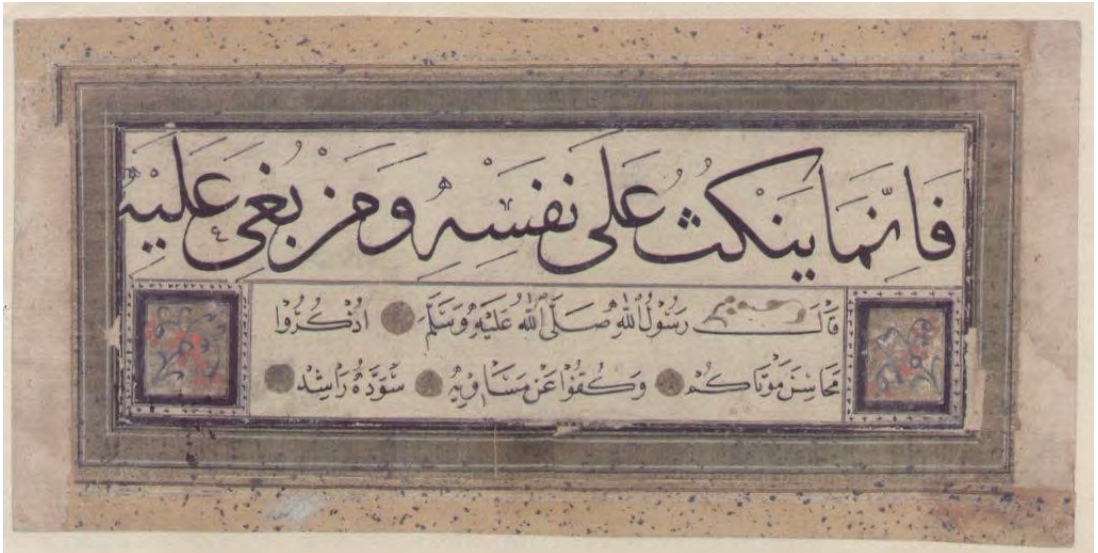 فَاِنَّمَا يَنْكُثُ عَلَى نَفْسِهِ وَمَنْ بُغِىَ عَلَيْهِ
قَالَ رَسُولُ اللّٰهِ صَلَّى اللّٰهُ عَلَيْهِ وَسَلَّمَ اذْكُرُوا
مَحَاسِنَ مَوْتَاكُمْ وَكُفُّوا عَنْ مَسَاوِيهِ سَوَّدَهُ رَاشِدْ